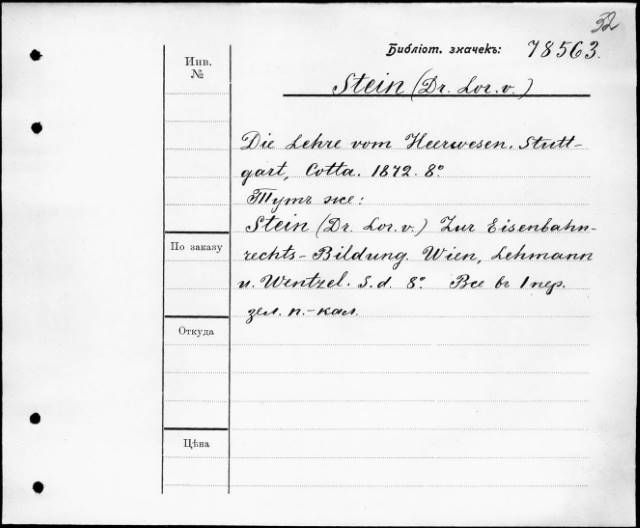 52
Библіот. значекъ: 78563.
Инв.
№
Stein (Dr. Lor. v.)
Die Lehre vom Heerwesen. Stutt-
gart, Cotta. 1872. 8º.
Тутъ же:
Stein (Dr. Lor. v.) Zur Eisenbahn-
По заказу
rechts-Bildung. Wien, Lehmann
u. Wentzel. S. d. 8º. Все въ 1 пер.
зел. п.-кал.
Откуда
Цѣна